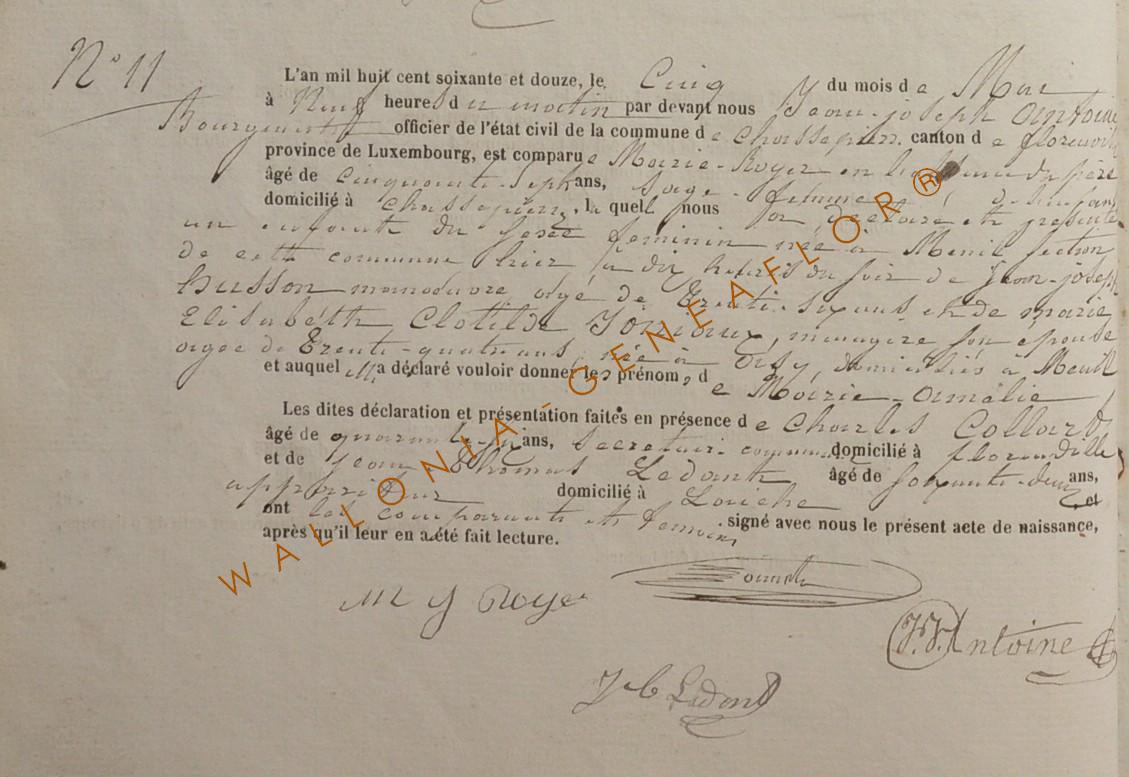 N° 11
L'an mil huit cent soixante et douze, le Cinq du mois de Mai
à Neuf heures du matin par devant nous Jean-joseph Antoine
Bourgmestre officier de l'état civil de la commune de Chassepierre, canton de florenville
province de Luxembourg, est comparue Marie-Royer en l'absence du père
âgé de Cinquante-Sept ans, Sage-femme
domicilié à Chassepierre, laquelle nous a déclaré et présenté
un enfant du sexe feminin née à Menil section
de cette commune hier à dix heures du soir de Jean-joseph
husson manœuvre agé de Trente-six ans et de marie
Elisabéth Clotilde, menagère son épouse
agée de Trente-quatre ans, née à, domiciliés à Menil
et auquel a déclaré vouloir donner les prénoms d
e Marie-Amélie
Les dites déclaration et présentation faites en présence de Charles Collard
âgé de quarante ans, Secretaire communal domicilié à florenville
et de Jean Thomas Ledant âgé de Soixante-deux ans,
appariteur domicilié à et
ont les comparants et temoins signé avec nous le présent acte de naissance,
après qu'il leur en a été fait lecture.
M J Royer
J.J. Antoine
Ledant
WALLONIA GENEAFLOR®